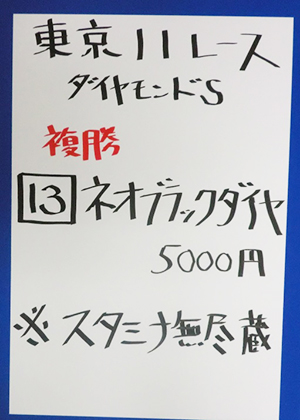 東京11レース
ダイヤモンドS
複勝
13 ネオブラックダイヤ
5000円
※スタミナ無尽蔵